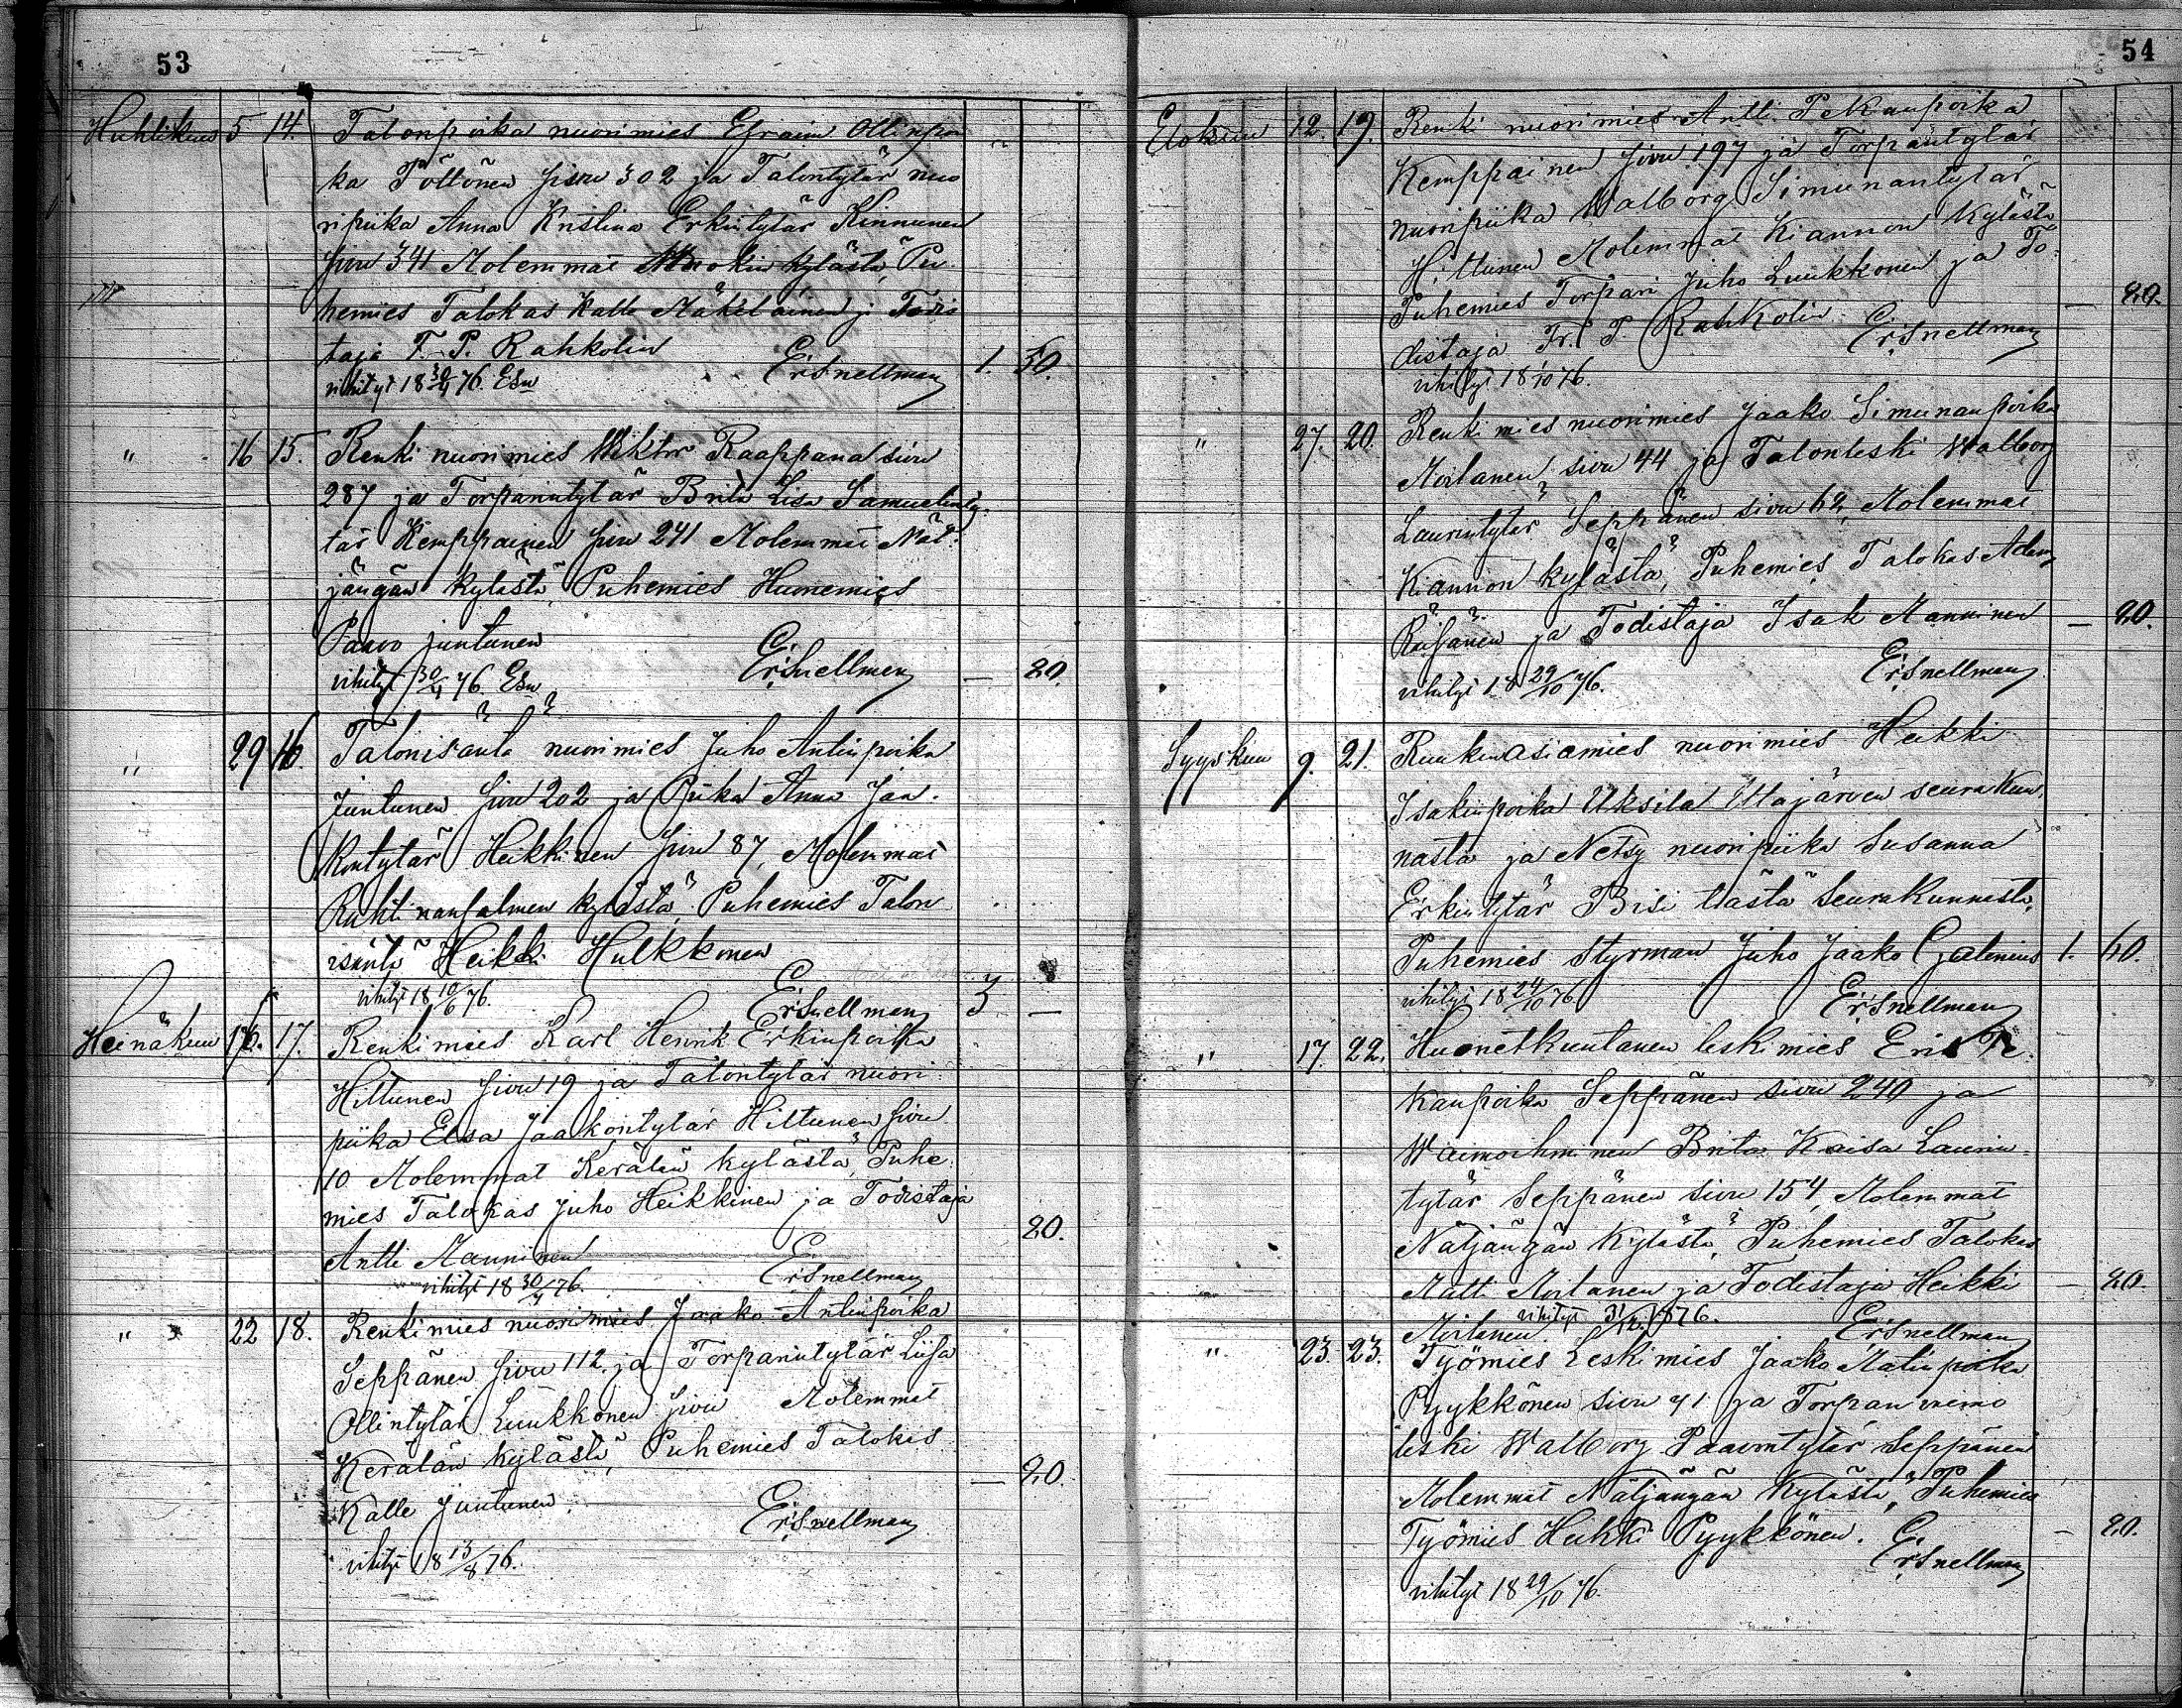 53
Huhtikuu 5 14. Talonpoika nuorimies Efraim Ollinpoi
ka Töttönen sivu 302 ja Talontytär nuo
ripiika Anna Kristina Erkintytär Kinnunen
sivu 341 Molemmat kylästä, Pu
hemies Talokas Kalle Mäkeläinen ja Todis
taja F. P. Rahkolin ErSnellman 1. 50.
vihityt 18 30/4 76. ESn
" 16 15. Renki nuorimies Wiktor Raappana sivu
287 ja Torparintytär Brita Lisa Samuelinty-
tär Kemppainen sivu 241 Molemmat Nät-
jängän kylästä, Puhemies Huonemies
Paavo Juntunen ErSnellman
vihityt 30/4 76 ESn — 80.
" 29 16. Talonisäntä nuorimies Juho Antinpoika
Juntunen sivu 202 ja Piika Anna Jaa-
kontytär Heikkinen sivu 87, Molemmat
Ruhtinansalmen kylästä, Puhemies Talon
isäntä Heikki Hulkkonen
vihityt 18 10/6 76. ErSnellman 3 —
Heinäkuu 16. 17. Renkimies Karl Henrik Erkinpoika
Hiltunen sivu 19 ja Talontytär nuori
piika Elsa Jaakontytär Hiltunen sivu
10 Molemmat Kerälän kylästä, Puhe
mies Talokas Juho Heikkinen ja Todistaja
Antti Manninen ErSnellman 80.
vihityt 18 30/7 76.
" 22 18. Renkimies nuorimies Jaako Antinpoika
Seppänen sivu 112. ja Torparintytär Liisa
Ollintytär Luukkonen sivu Molemmat
Kerälän kylästä, Puhemies Talokas
Kalle Juntunen. ErSnellman — 80.
vihityt 18 13/8 76.
54
Elokuu 12. 19. Renki nuorimies Antti Pekanpoika
Kemppainen sivu 197 ja Torparintytär
nuoripiika Walborg Simunantytär
Hiltunen Molemmat Kiannon kylästä
Puhemies Torpari Juho Luukkonen ja To-
distaja Fr. P. Rahkolin ErSnellman — 80.
vihityt 18 1/10 76.
" 27. 20. Renkimies nuorimies Jaako Simunanpoika
Moilanen sivu 44 ja Talonleski Walborg
Laurintytär Seppänen sivu 62, Molemmat
Kiannon kylästä, Puhemies Talokas Adam
Räisänen ja Todistaja Isak Manninen — 80.
vihityt 18 29/10 76. ErSnellman
Syyskuu 9. 21. Ruukinasiamies nuorimies Heikki
Isakinpoika Uksila Uttajärven seurakun-
nasta ja Netsy nuoripiika Susanna
Erkintytär Bisi tästä seurakunnasta,
Puhemies Styrman Juho Jaako Galenius 1. 60.
vihityt 18 24/10 76 ErSnellman
" 17. 22. Huonetkuntanen leskimies Erik Pe-
kanpoika Seppänen sivu 240 ja
Waimoihminen Brita Kaisa Laurin-
tytär Seppänen sivu 154, Molemmat
Nätjängän Kylästä, Puhemies Talokas
Matti Moilanen ja Todistaja Heikki — 80.
Moilanen. vihityt 31/12 1876. ErSnellman
" 23. 23. Työmies Leskimies Jaako Matinpoika
Pyykkönen sivu 41 ja Torpan vaimo
leski Walborg Paavontytär Seppänen
Molemmat Nätjängän Kylästä, Puhemies
Työmies Heikki Pyykkönen. ErSnellman — 80.
vihityt 18 29/10 76.